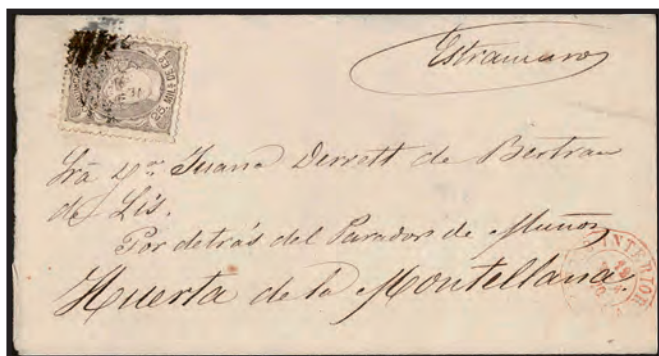 Estramuros
25 MILS DE E.
Srã Dª Juana Derrett de Bertran
de Lis.
Por detrás del Parador de Muñoz
Huerta de la Montellana.
INTERIOR